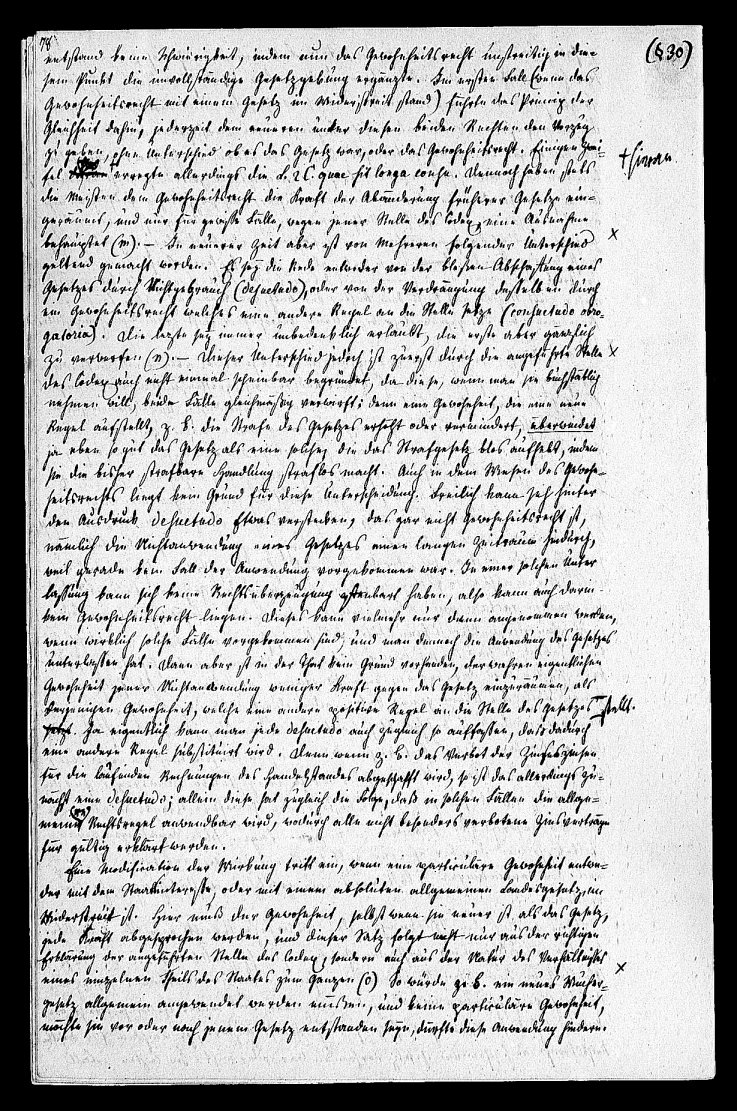 78
(§30)
entstand keine Schwierigkeit, indem nun das Gewohnheitsrecht unstreitig in die-
sem Punkt die unvollständige Gesetzgebung ergänzte. Im ersten Fall (wenn das
Gewohnheitsrecht mit einem Gesetz im Widerstreit stand) führte das Princip der
Gleichheit dahin, jederzeit dem neueren unter diesen beiden Rechten den Vorzug
zu geben, ohne Unterschied ob es das Gesetz war, oder das Gewohnheitsrecht. Einigen Zwei-
fel + erregte allerdings die L. 2 C. quae sit longa cons. Dennoch haben stets
+ hieran
die Meisten dem Gewohnheitsrecht die Kraft der Abänderung früherer Gesetze ein-
geräumt, und nur für gewisse Fälle, wegen jener Stelle des Codex, eine Ausnahme
behauptet (m). – In neuerer Zeit aber ist von Mehreren folgender Unterschied x
geltend gemacht worden. Es sey die Rede entweder von der bloßen Abschaffung eines
Gesetzes durch Nichtgebrauch (desuetudo), oder von der Verdrängung desselben durch
ein Gewohnheitsrecht welches eine andere Regel an die Stelle setze (consuetudo obro-
gatoria). Die letzte sey immer unbedenklich erlaubt, die erste aber gänzlich
zu verwerfen (n). – Dieser Unterschied jedoch ist zuerst durch die angeführte Stelle x
des Codex auch nicht einmal scheinbar begründet, da diese, wenn man sie buchstäblich
nehmen will, beide Fälle gleichmäßig verwirft; denn eine Gewohnheit, die eine neue
Regel aufstellt, z. B. die Strafe des Gesetzes erhöht oder vermindert, überwindet
ja eben so gut das Gesetz als eine solche, die das Strafgesetz blos aufhebt, indem
sie die bisher strafbare Handlung straflos macht. Auch in dem Wesen des Gewohn-
heitsrechts liegt kein Grund für diese Unterscheidung. Freilich kann sich hinter
den Ausdruck desuetudo Etwas verstecken, das gar nicht Gewohnheitsrecht ist,
nämlich die Nichtanwendung eines Gesetzes einen langen Zeitraum hindurch,
weil gerade kein Fall der Anwendung vorgekommen war. In einer solchen Unter
lassung kann sich keine Rechtsüberzeugung offenbart haben, also kann auch darin
kein Gewohnheitsrecht liegen. Dieses kann vielmehr nur dann angenommen werden,
wenn wirklich solche Fälle vorgekommen sind, und man dennoch die Anwendung des Gesetzes
unterlassen hat. Dann aber ist in der That kein Grund vorhanden, der wahren eigentlichen
Gewohnheit jener Nichtanwendung weniger Kraft gegen das Gesetz einzuräumen, als
derjenigen Gewohnheit, welche eine andere positive Regel an die Stelle des Gesetzes stellt.
Ja eigentlich kann man jede desuetudo auch zugleich so auffassen, daß dadurch
eine andere Regel substituirt wird. Denn wenn z. B. das Verbot der Zinseszinsen
für die laufenden Rechnungen des Handelstandes abgeschafft wird, so ist das allerdings zu-
nächst eine desuetudo; allein diese hat zugleich die Folge, daß in solchen Fällen die allge-
meine Rechtsregel anwendbar wird, wodurch alle nicht besonders verbotene Zinsverträge
für gültig erklärt werden.
Eine Modification der Wirkung tritt ein, wenn eine particuläre Gewohnheit entwe-
der mit dem Staatsinteresse, oder mit einem absoluten allgemeinen Landesgesetz, im
Widerstreit ist. Hier muß der Gewohnheit, selbst wenn sie neuer ist als das Gesetz,
jede Kraft abgesprochen werden, und dieser Satz folgt nicht nur aus der richtigen
Erklärung der angeführten Stelle des Codex, sondern auch aus der Natur des Verhältnisses
eines einzelnen Theils des Staates zum Ganzen (o) So würde z. B. ein neues Wucher- x
gesetz allgemein angewendet werden müssen, und keine particuläre Gewohnheit,
möchte sie vor oder nach jenem Gesetz entstanden seyn, dürfte diese Anwendung hindern.